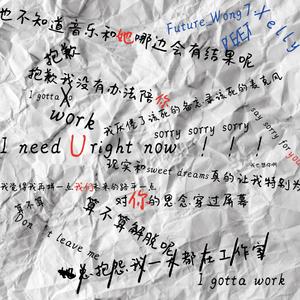 也不知道音乐和她哪边会有结果呢
Future_Wong7
Kelly
抱歉
抱歉我没有办法陪你
I gotta go
work
我厌倦了该死的音乐该死的麦克风
sorry sorry sorry
say sorry for you
I need U right now ! ! !
现实和sweet dreams真的让我特别为
我觉得我再唱一点我们未来的路平一点
算不算
对你的思念穿过屏幕
Don't leave me
算不算解脱呢
总抱怨我一来都在工作室
I gotta work